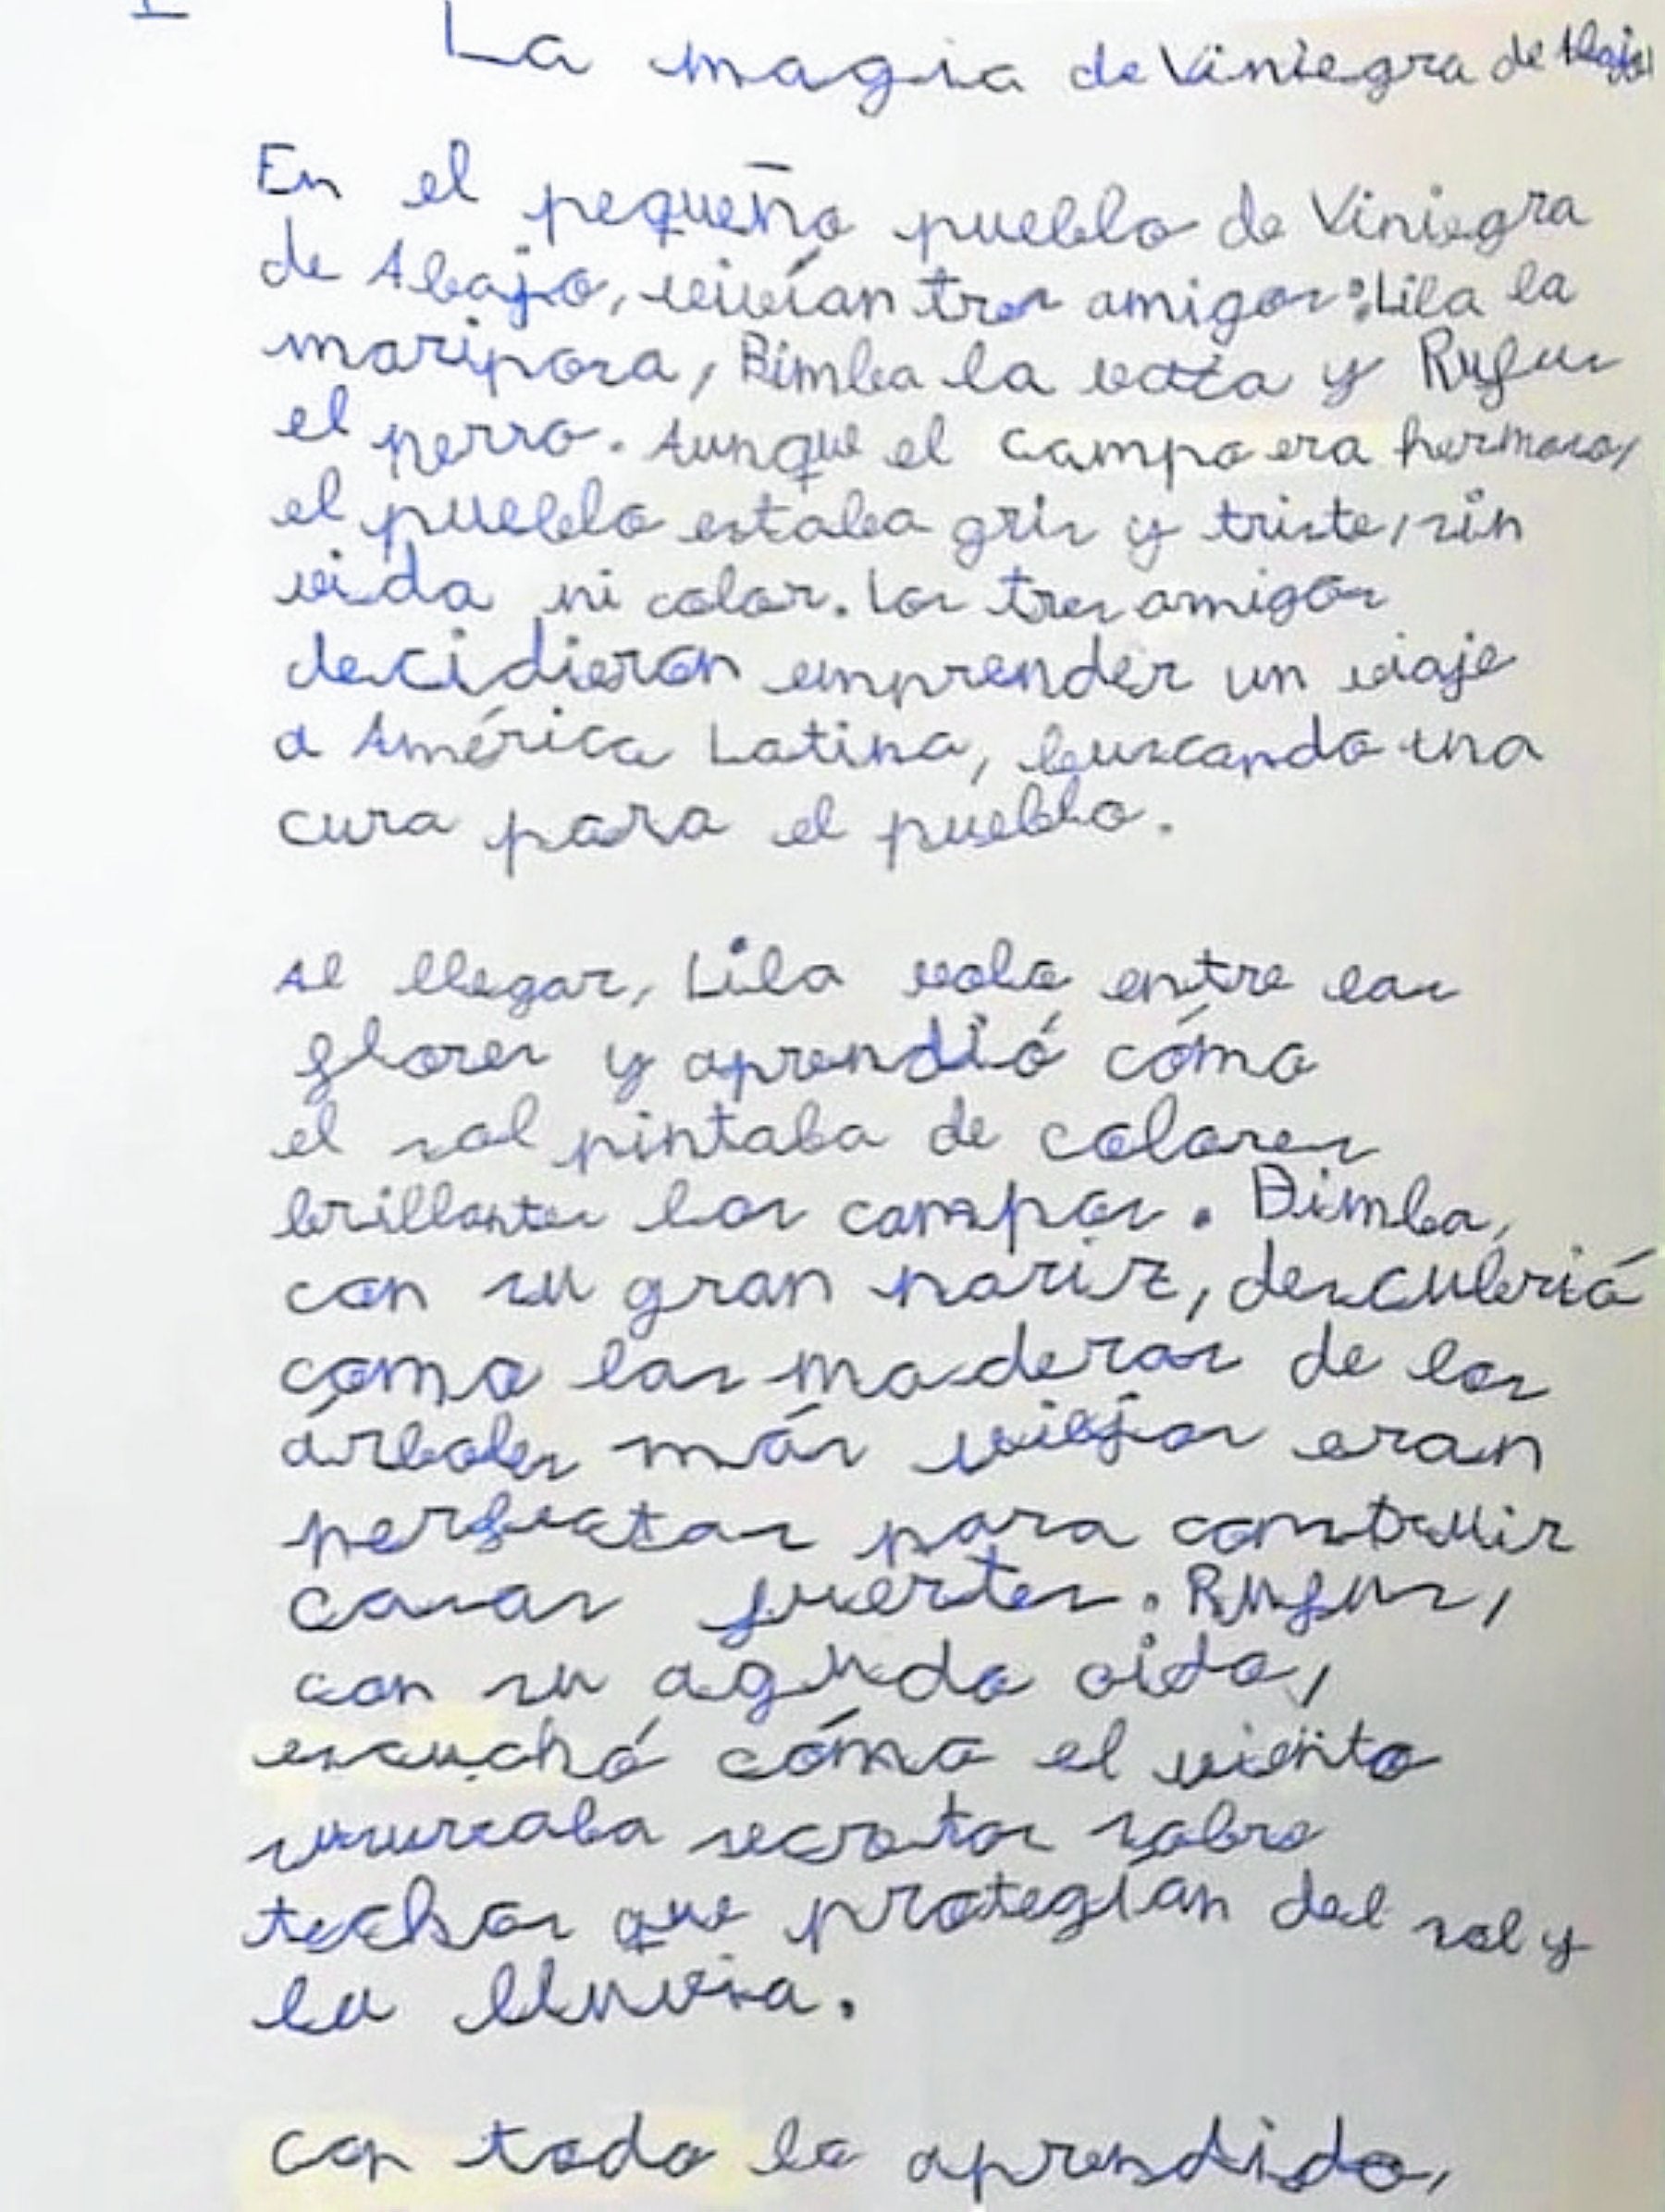 La magia de Viniegra de Abajo
En el pequeño pueblo de Viniegra
de Abajo, vivían tres amigos: Lila la
mariposa, Bimba la vaca y Rufus
el perro. Aunque el campo era hermoso,
el pueblo estaba gris y triste, sin
vida ni color. Los tres amigos
decidieron emprender un viaje
a América Latina, buscando una
cura para el pueblo.
Al llegar, Lila voló entre las
flores y aprendió cómo
el sol pintaba de colores
brillantes los campos. Bimba,
con su gran nariz, descubrió
como las maderas de los
árboles más viejos eran
perfectas para construir
casas fuertes. Rufus,
con su agudo oido,
escuchó cómo el viento
susurraba secretos sobre
techos que protegían del sol y
la lluvia.
Con todo lo aprendido,